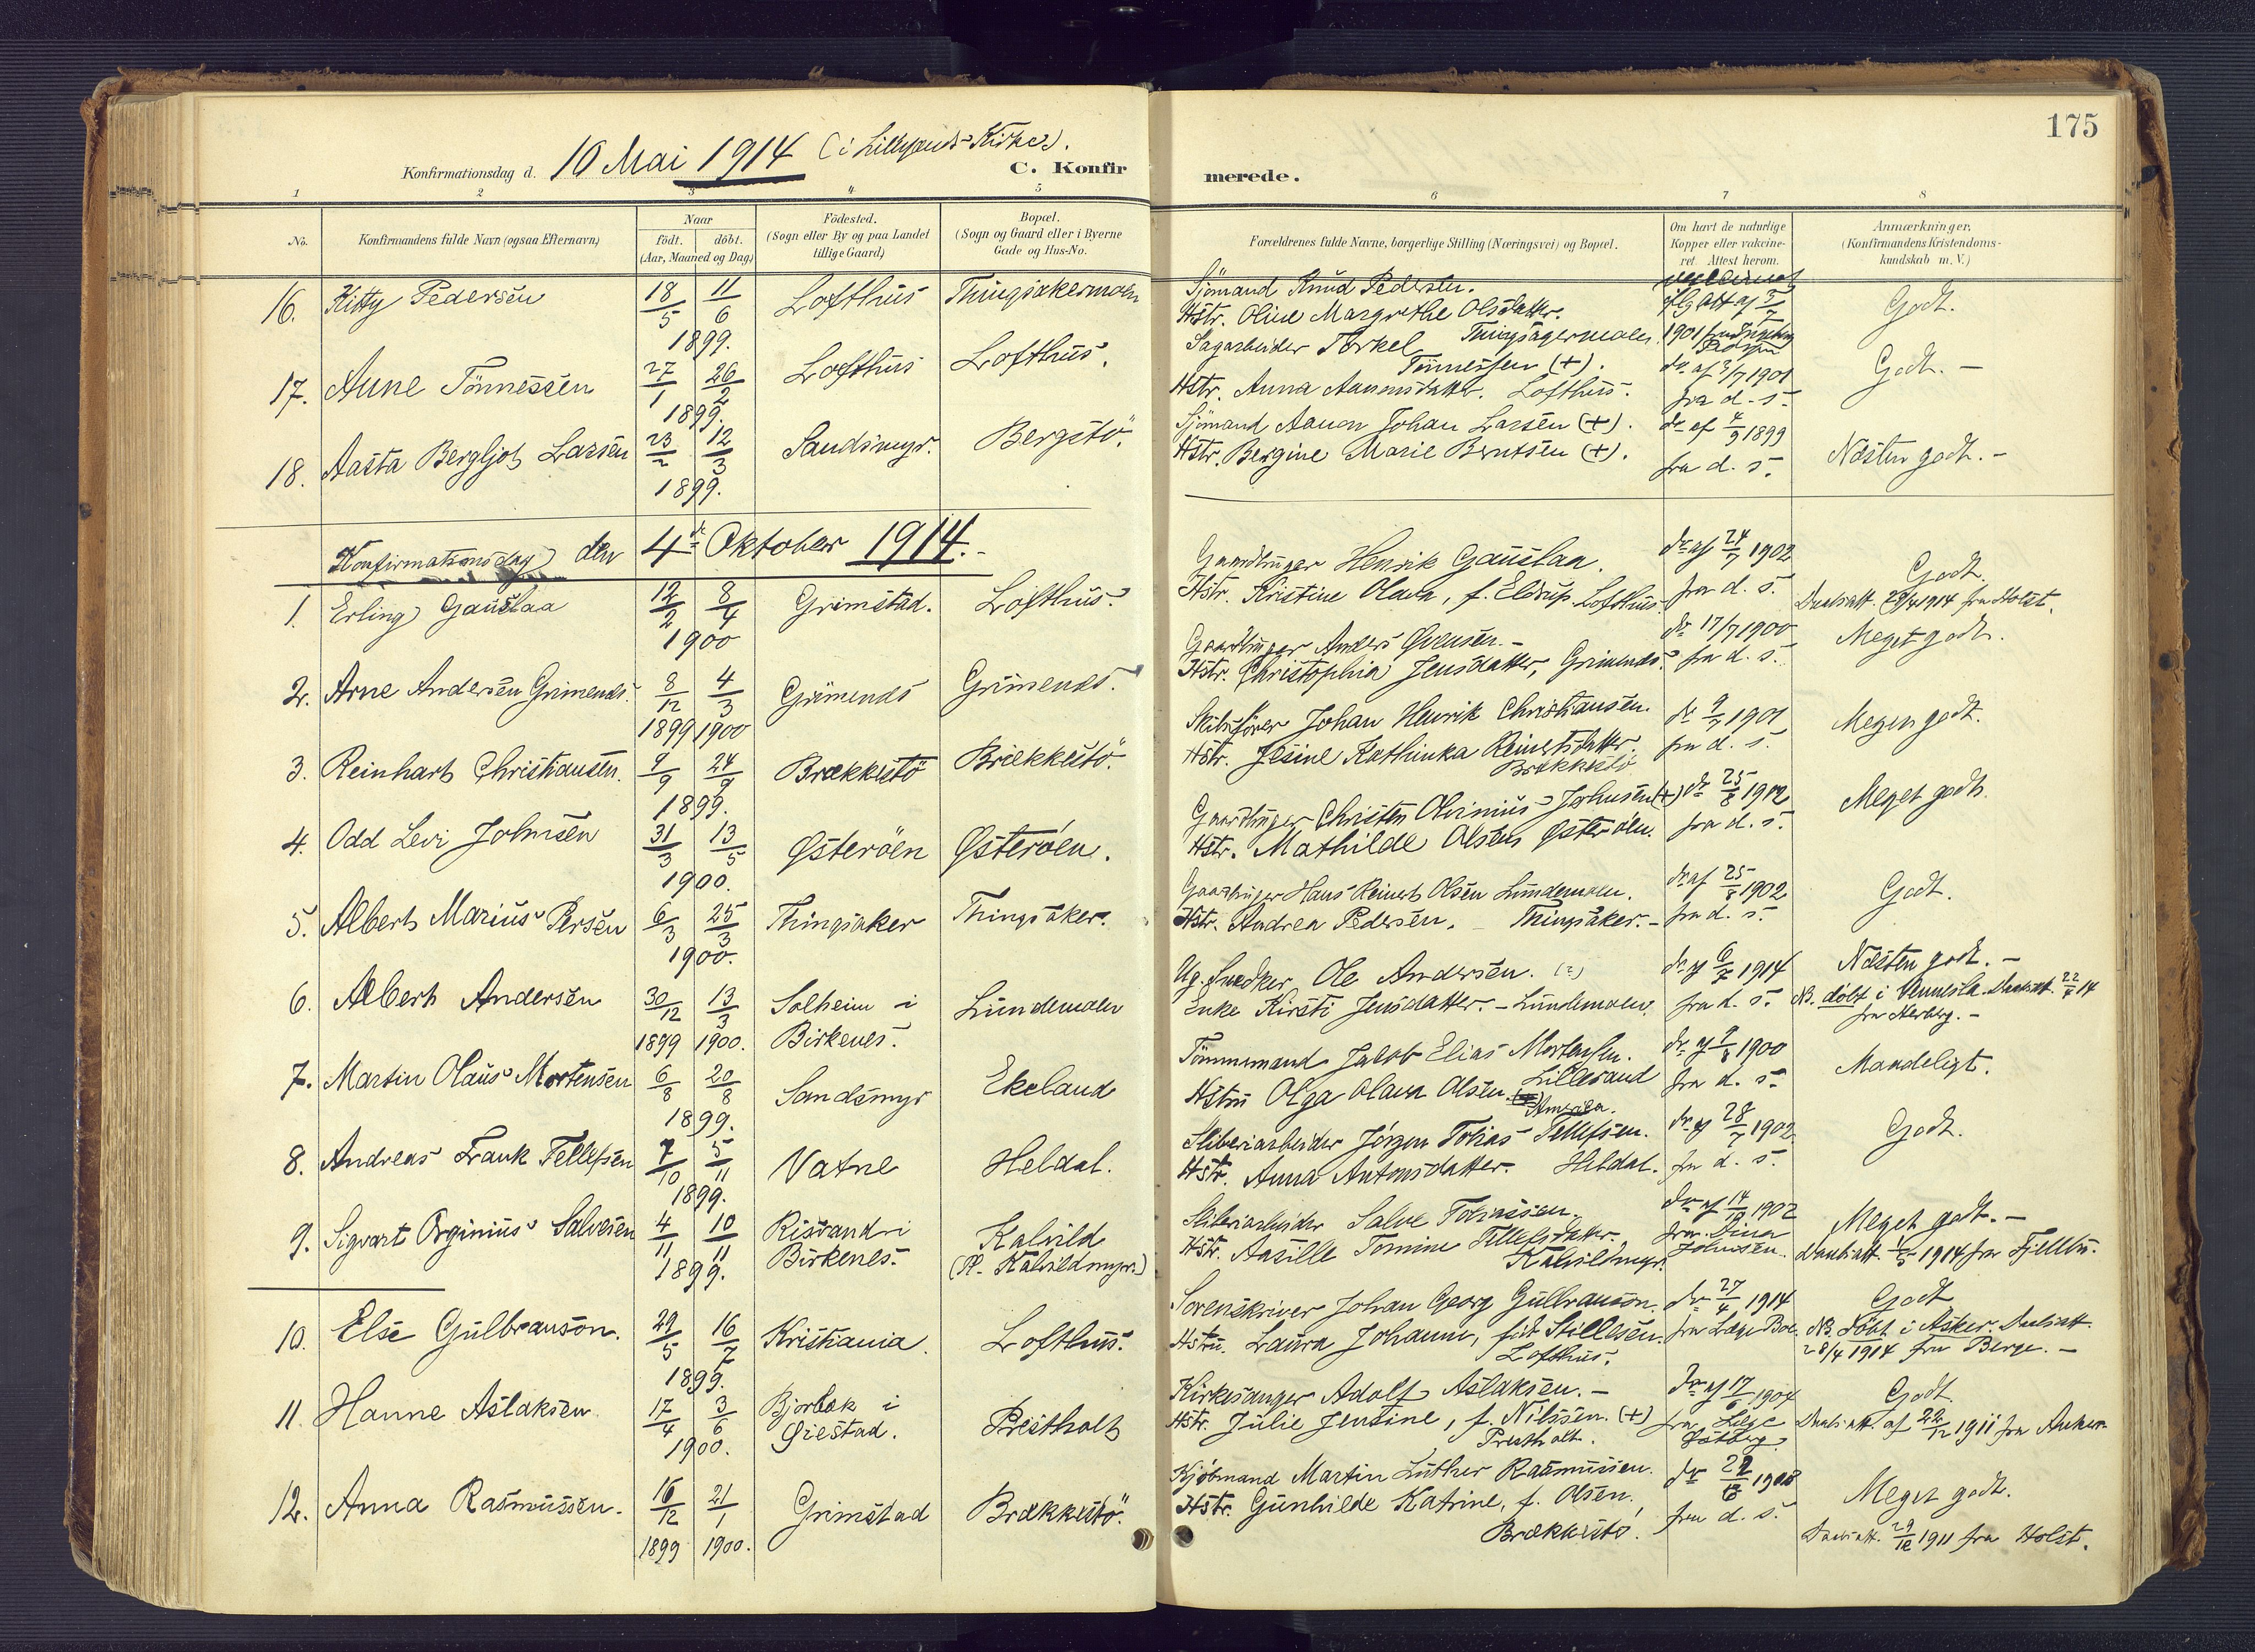 175
Konfirmationsdag d. 10 Mai 1914 (i Lillesands Kirke).
C. Konfirmerede.
1 2 3 4 5 6 7 8
No. Konfirmandens fulde Navn (ogsaa Efternavn)
Naar
födt. döbt.
(Aar, Maaned og Dag)
Födested.
(Sogn eller By og paa Landet
tillige Gaard)
Bopæl.
(Sogn og Gaard eller i Byerne
Gade og Hus-No.
Forældrenes fulde Navne, borgerlige Stilling (Næringsvei) og Bopæl.
Om havt de naturlige
Kopper eller vakcine-
ret. Attest herom.
Anmærkninger,
(Konfirmandens Kristendoms-
kundskab m. V.)
16. Kitty Pedersen 18/5 11/6 1899. Lofthus Thingsakermoen
Sjömand Knud Pedersen.
Hstr. Oline Margrethe Olsdatter.
Thingsagermoen.
1901 fra Ingeborg
Godt.
17. Aune Tönnessen 27/1 26/2 1899. Lofthus Lofthus.
Sagarbeider Torkel
Tönnessen (+).
Hstr. Anna Aanonsdatter. Lofthus.
do. af 3/7 1901
fra d. s.
Godt. -
18. Aasta Bergljot Larsen 23/2 12/3 1899. Sandsmyr. Bergstö.
Sjömand Aanon Johan Larsen (+).
Hstr. Bergine Marie Berntsen (+).
do. af 4/9 1899
fra d. s.
Næsten godt. -
Konfirmationsdag den 4de Oktober 1914. -
1. Erling Gauslaa 12/2 8/4 1900 Grimstad. Lofthus.
Gaardbruger Henrik Gauslaa.
Hstr. Kristine Olava, f. Eldrup. Lofthus.
do. af 24/7 1902
fra d. s.
Godt.
Daabsatt. 29/4 1914 fra Holst.
2. Arne Andersen Grimenes. 8/12 1899 4/3 1900 Grimenes Grimenes.
Gaardbruger Anders Svensen. -
Hstr. Christophia Jensdatter, Grimenes.
do. 17/7 1900
fra d. s.
Meget godt.
3. Reinhart Christiansen. 9/9 24/9 1899. Brækkestö Brækkestö.
Skibsförer Johan Henrik Christiansen.
Hstr. Jesine Kathinka Reinertsdatter.
Brækkestö
do. 9/7 1901
fra d. s.
Meget godt.
4. Odd Levi Johnsen 31/3 13/5 1900. Østeröen Østeröen.
Gaardbruger Christen Olvinius Johnsen (+)
Hstr. Mathilde Olsen Østeröen.
do. 25/8 1902
fra d. s.
Meget godt.
5. Albert Marius Persen 6/3 25/3 1900. Thingsaker Thingsaker.
Gaardbruger Hans Reinert Olsen Lundemoen.
Hstr. Andrea Pedersen. - Thingsaker. -
do. af 25/8 1902
fra d. s.
Godt.
6. Albert Andersen 30/12 1899 13/3 1900. Solheim i
Birkenes. Lundemoen
Ug. Snedker Ole Andersen.
Enke Kirsti Jensdatter. - Lundemoen.
1914
fra d. s.
Næsten godt. -
NB. döbt i Vennesla. Daabsatt. 14
7. Martin Olaus Mortensen 6/8 20/8 1899. Sandsmyr Ekeland
Tömmermand Jakob Elias Mortensen.
Lillesand
Hstru Olga Olava Olsen.
Amerika.
1900
fra d. s.
Maadeligt.
8. Andreas Frank Tellefsen 7/10 5/11 1899. Vatne Heldal.
Sliberiarbeider Jörgen Tobias Tellefsen.
Hstr. Anna Antonsdatter. Heldal.
do. af 28/7 1902
fra d. s.
Godt.
9. Sigvart Orginius Salvesen 4/11 10/11 1899. Risrand i
Birkenes. Kalvild
(Pl. Kalvildmyr.)
Sliberiarbeider Salve Tobiassen.
Hstr. Aasille Tomine Tellefsdatter.
Kalvildmyr.
do. af 14/10 1902
fra Dina
Johnsen.
Meget godt. -
Daabsatt. 1914 fra Fjellbu.
10. Else Gulbranson. 29/5 16/7 1899. Kristiania. Lofthus.
Sorenskriver Johan Georg Gulbranson.
Hstru. Laura Johanne, föd Stillesen.
Lofthus.
do. 27/4 1914
fra Læge Boe.
Godt
NB. Döbt i Asker. Daabsatt.
28/4 1914 fra Berge. -
11. Hanne Aslaksen 17/4 3/6 1900. Bjorbæk i
Øiestad. Prestholt
Kirkesanger Adolf Aslaksen. -
Hstr. Julie Jensine, f. Nilssen. (+)
Prestholt.
fra Læge
Östberg.
Godt
Daabsatt. af 22/12 1911 fra
12. Anna Rasmussen. 16/12 1899 21/1 1900. Grimstad Brækkestö.
Kjöbmand Martin Luther Rasmussen.
Hstr. Gunhilde Katrine, f. Olsen.
Brækkestö.
fra d. s.
Meget godt.
Daabsatt. 29/12 1911 fra Holst.